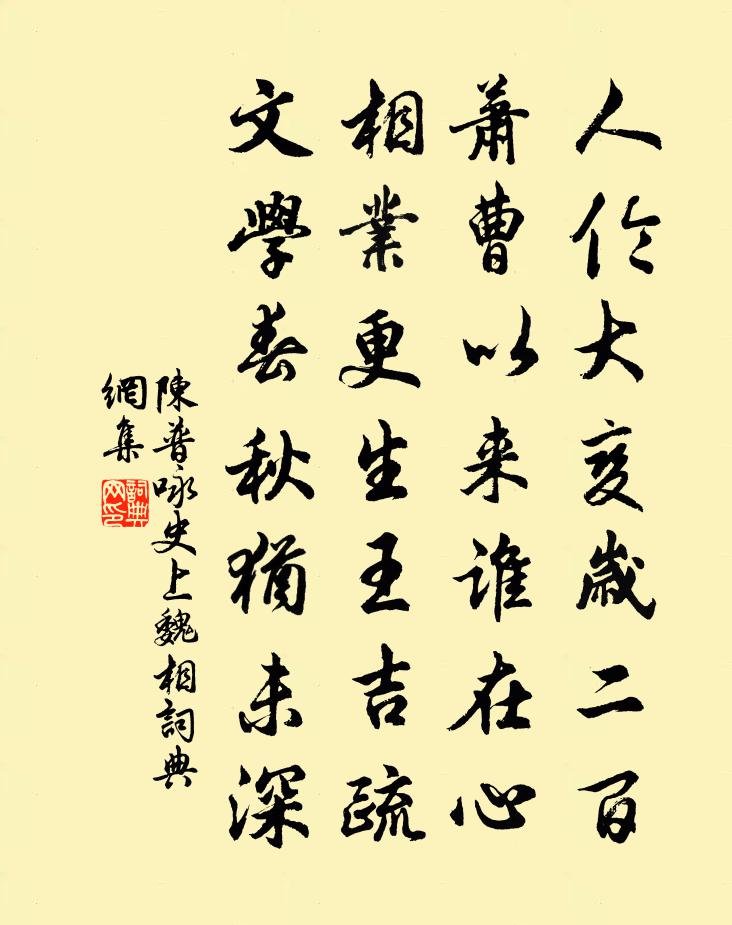 人伦大变岁二百
萧曹以来谁在心
相業更生王吉疏
文學春秋猶未深
陳普咏史上魏相詞典
網集
詞典
网印